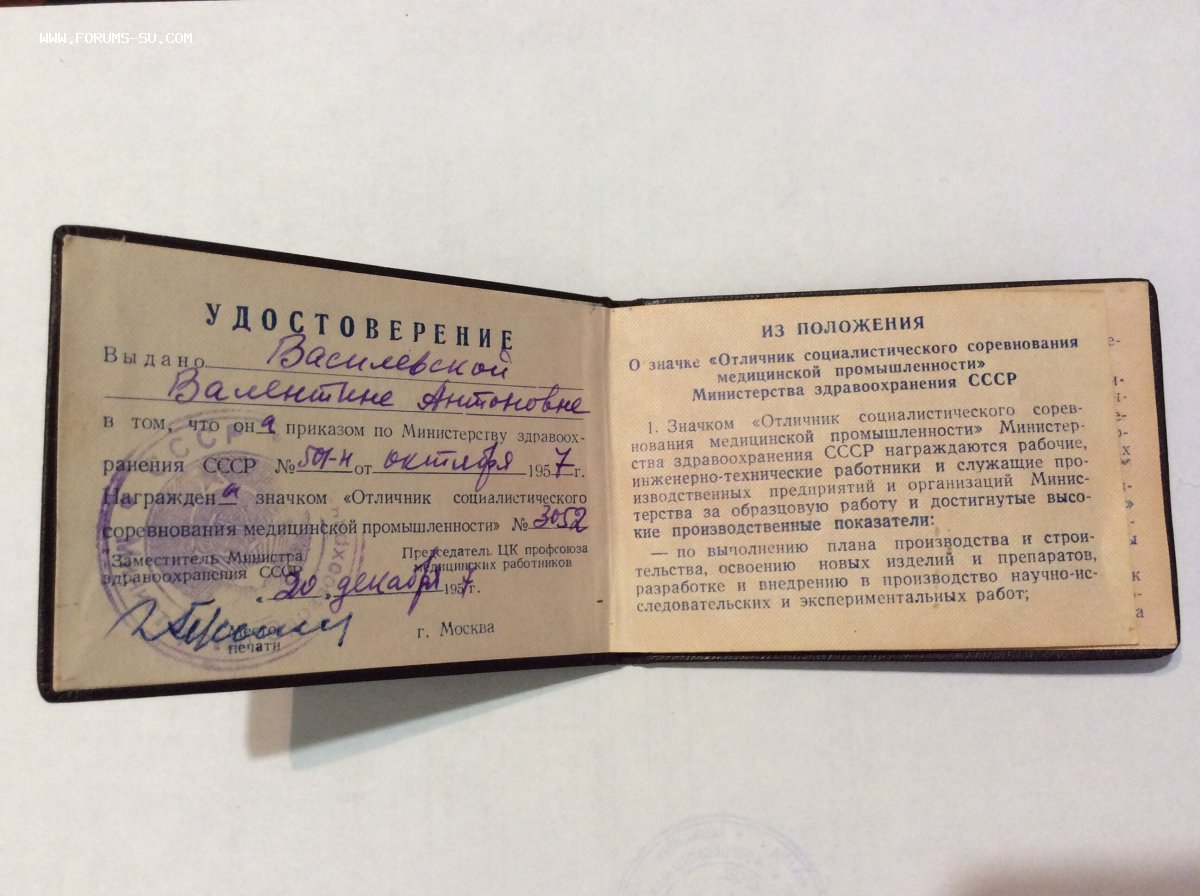 WWW.FORUMS-SU.COM
УДОСТОВЕРЕНИЕ
Выдано Василевской
Валентине Антоновне
в том, что она приказом по Министерству здравоох-
ранения СССР № 501-н от октября 1957 г.
Награждена значком «Отличник социалистического
соревнования медицинской промышленности» № 3052
Заместитель Министра
здравоохранения СССР
Председатель ЦК профсоюза
медицинских работников
«20» декабря 1957 г.
Место
печати
г. Москва
ИЗ ПОЛОЖЕНИЯ
О значке «Отличник социалистического соревнования
медицинской промышленности»
Министерства здравоохранения СССР
1. Значком «Отличник социалистического сорев-
нования медицинской промышленности» Министер-
ства здравоохранения СССР награждаются рабочие,
инженерно-технические работники и служащие про-
изводственных предприятий и организаций Минис-
терства за образцовую работу и достигнутые высо-
кие производственные показатели:
— по выполнению плана производства и строи-
тельства, освоению новых изделий и препаратов,
разработке и внедрению в производство научно-ис-
следовательских и экспериментальных работ;